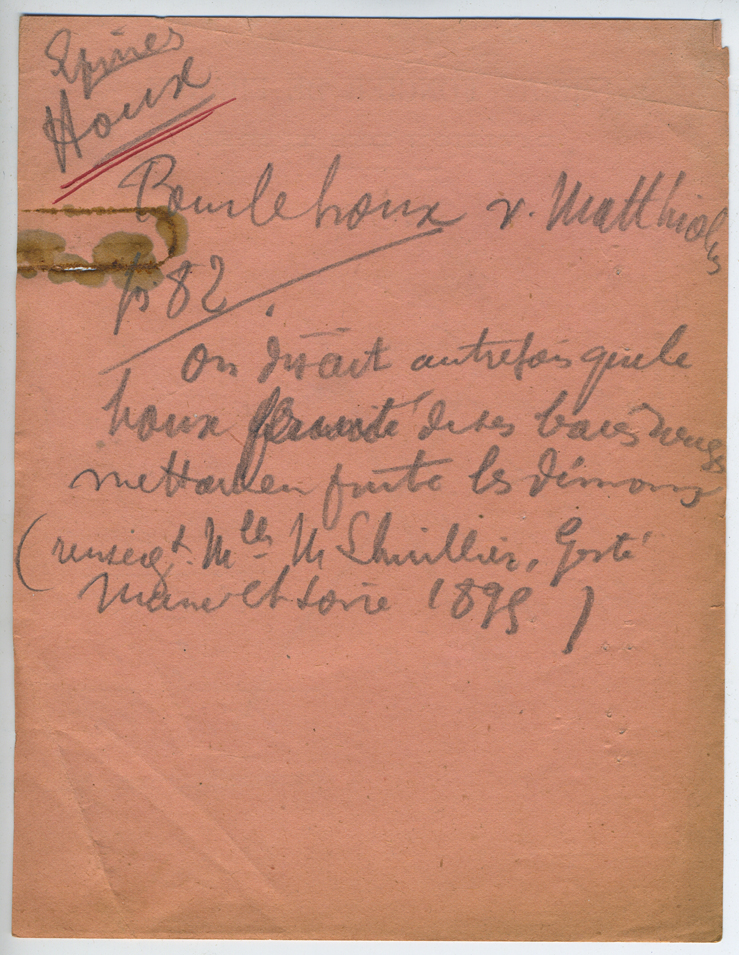 Epines
Houx
Pour le houx v. Matthiolus
p. 82.
On disait autrefois que le
houx de ses baies rouges
mettait en fuite les démons
(renseigt. Mlles M Lhuillier, Gesté
Maine et Loire 1895)